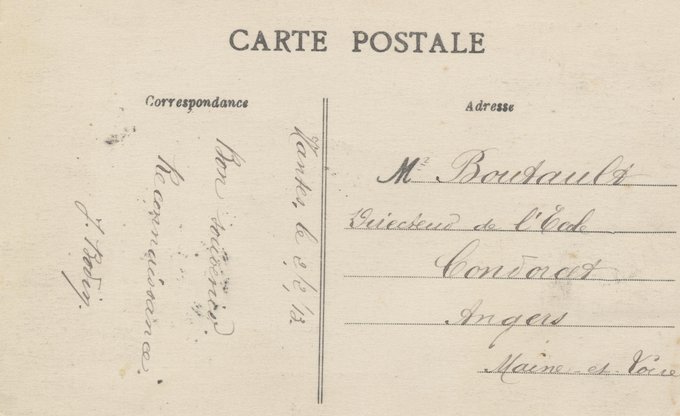 CARTE POSTALE
Correspondance
Nantes, le 2/2/12
Bon souvenir.
Reconnaissance.
J. Bodin.
Adresse
Mr Boutault
Directeur de l'Ecole
Condorcet
Angers
Maine et Loire